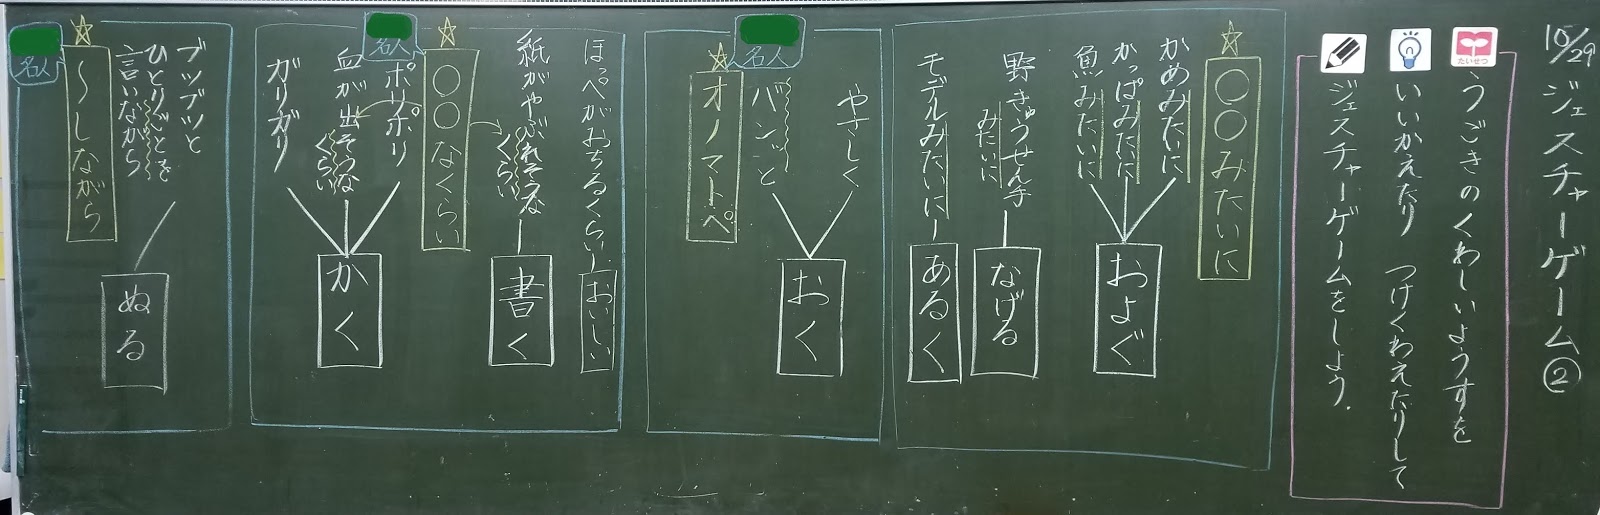 10/29 ジェスチャーゲーム②
たいせつ
うごきのくわしいようすを
いいかえたり つけくわえたりして
ジェスチャーゲームをしよう.
○○みたいに
かめみたいに
かっぱみたいに
魚みたいに
およぐ
野きゅうせん手
みたいに
なげる
モデルみたいに
あるく
名人
やさしく
バンッと
おく
オノマトペ
ほっぺがおちるくらい
おいしい
紙がやぶれそうな
くらい
書く
○○なくらい
名人
ポリポリ
血が出そうな
くらい
ガリガリ
かく
ブツブツと
ひとりごとを
言いながら
ぬる
～しながら
名人